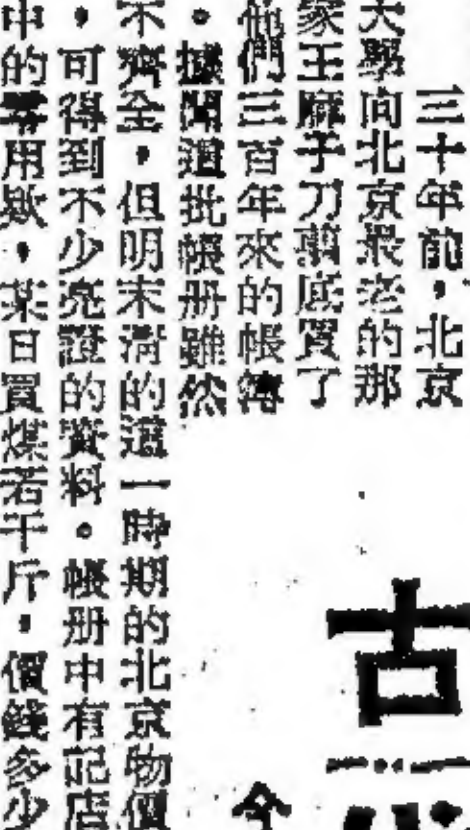 三十年前，北京
大學向北京最老的那
家王麻子刀剪店買了
他們三百年來的帳簿
。據聞這批帳册雖然
不齊全，但明末清的這一時期的北京物價
，可得到不少亮證的資料。帳册中有記店
中的零用欵，某日買煤若干斤，價錢多少
古
今